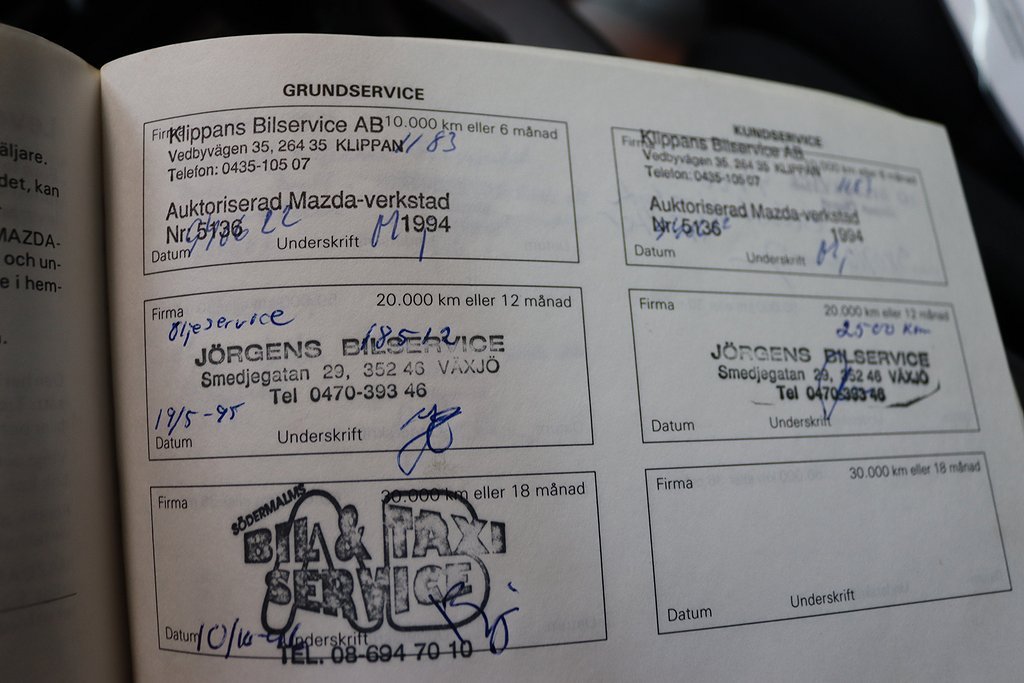 äljare.
det, kan
MAZDA-
och un-
e i hem-
GRUNDSERVICE
Firma
10.000 km eller 6 månad
Klippans Bilservice AB
Vedbyvägen 35, 264 35 KLIPPAN
1183
Telefon: 0435-105 07
Auktoriserad Mazda-verkstad
Nr. 5136 1994
940622
Datum
Underskrift
Firma
20.000 km eller 12 månad
Oljeservice
18512
JÖRGENS BILSERVICE
Smedjegatan 29, 352 46 VÄXJÖ
Tel 0470-393 46
19/5-95
Datum
Underskrift
Firma
30.000 km eller 18 månad
SÖDERMALMS
BIL & TAXI
SERVICE
Datum
Underskrift
TEL. 08-694 70 10
KUNDSERVICE
Firma
10.000 km eller 6 månad
Klippans Bilservice AB
Vedbyvägen 35, 264 35 KLIPPAN
Telefon: 0435-105 07
1183
Auktoriserad Mazda-verkstad
Nr. 5136 1994
Datum
Underskrift
Firma
20.000 km eller 12 månad
2500 km
JÖRGENS BILSERVICE
Smedjegatan 29, 352 46 VÄXJÖ
Tel 0470-393 46
Datum
Underskrift
Firma
30.000 km eller 18 månad
Datum
Underskrift